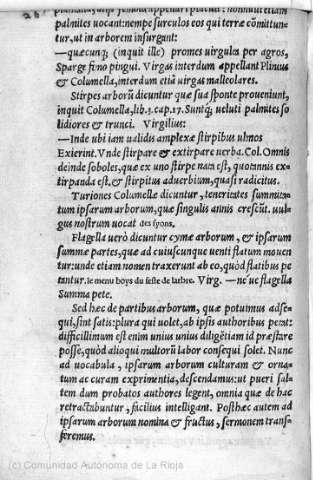 palmites uocant: nempe surculos eos qui terræ cōmittun-
tur, ut in arborem insurgant:
—quæcunq; (inquit ille) promes uirgulta per agros,
Sparge fimo pingui. Virgas interdum appellant Plinius
& Columella, interdum etiā uirgas malleolares.
Stirpes arborū dicuntur quæ sua sponte proueniunt,
inquit Columella, lib.3.cap.17. Suntq; ueluti palmites so
lidiores & trunci. Virgilius:
—Inde ubi iam ualidis amplexæ stirpibus ulmos
Exierint. Vnde stirpare & extirpare uerba. Col. Omnis
deinde soboles, quæ ex uno stirpe nata est, quotannis ex-
tirpanda est, & stirpitus aduerbium, quasi radicitus.
Turiones Columellæ dicuntur, teneritates summita-
tum ipsarum arborum, quæ singulis annis crescūt. uul-
gus nostrum uocat des syons.
Flagella uerò dicuntur cymæ arborum, & ipsarum
summæ partes, quæ ad cuiuscunque uenti flatum mouen
tur: unde etiam nomen traxerunt ab eo, quòd flatibus pe
tantur. le menu boys du feste de larbre. Virg. —ne'ue flagella
Summa pete.
Sed hæc de partibus arborum, quæ potuimus adse-
qui, sint satis: plura qui uolet, ab ipsis authoribus petat:
difficillimum est enim unius unius diligētiam id præstare
posse, quòd alioqui multorū labor consequi solet. Nunc
ad uocabula, ipsarum arborum culturam & orna-
tum ac curam exprimentia, descendamus: ut pueri sal-
tem dum probatos authores legent, omnia quæ de hac
re tractabuntur, facilius intelligant. Posthæc autem ad
ipsarum arborum nomina & fructus, sermonem trans-
feremus.
(c) Comunidad Autónoma de La Rioja